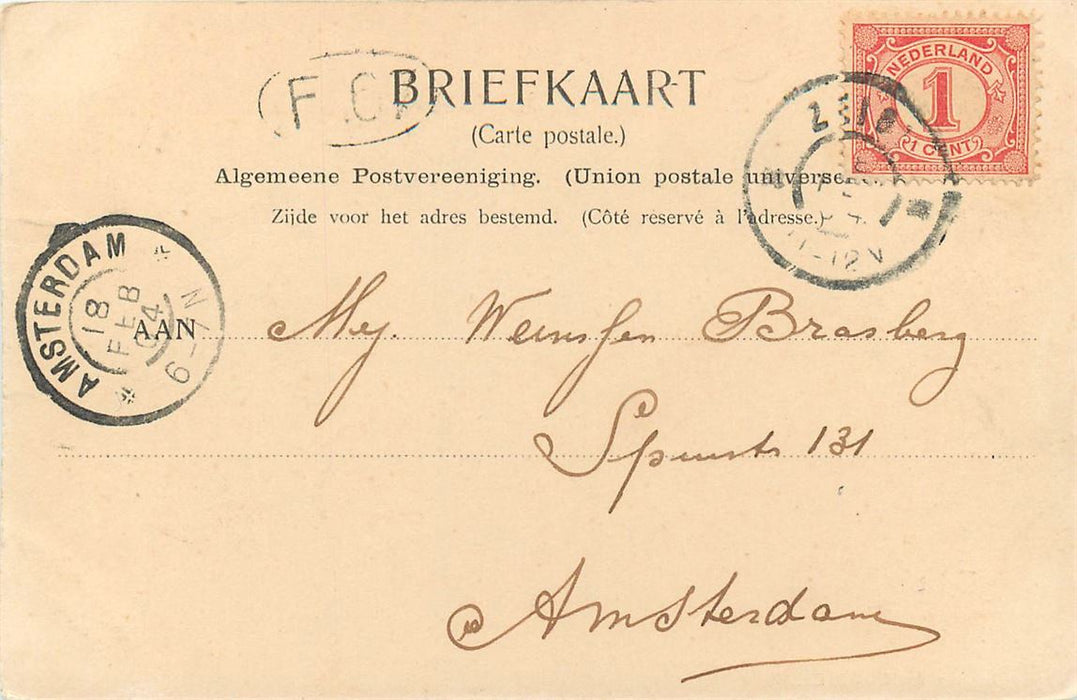 BRIEFKAART
(Carte postale.)
Algemeene Postvereeniging. (Union postale universe
Zijde voor het adres bestemd. (Côté reservé à l'adresse.)
NEDERLAND
1
1 CENT
ZEIST
11-12V
F.C.
AMSTERDAM
18
FEB
04
6-7N
AAN
Mej. Brasberg
131
Amsterdam